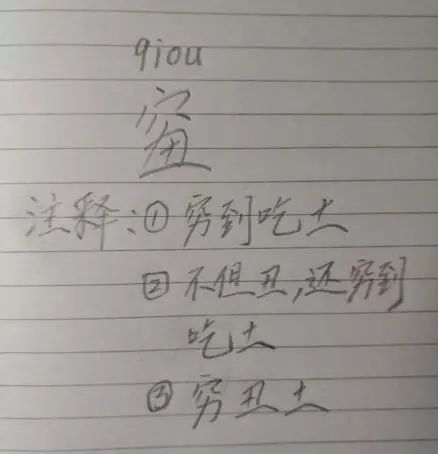 qiou
注释:①穷到吃土
②不但丑,还穷到
吃土
③穷丑土